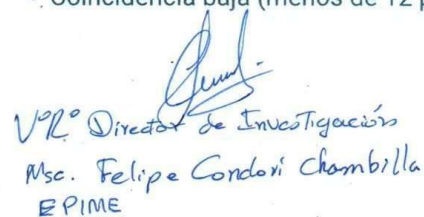 Coincidencia baja (menos de 12 p
V°R° Director de Investigación
Msc. Felipe Condori Chambilla
EPIME